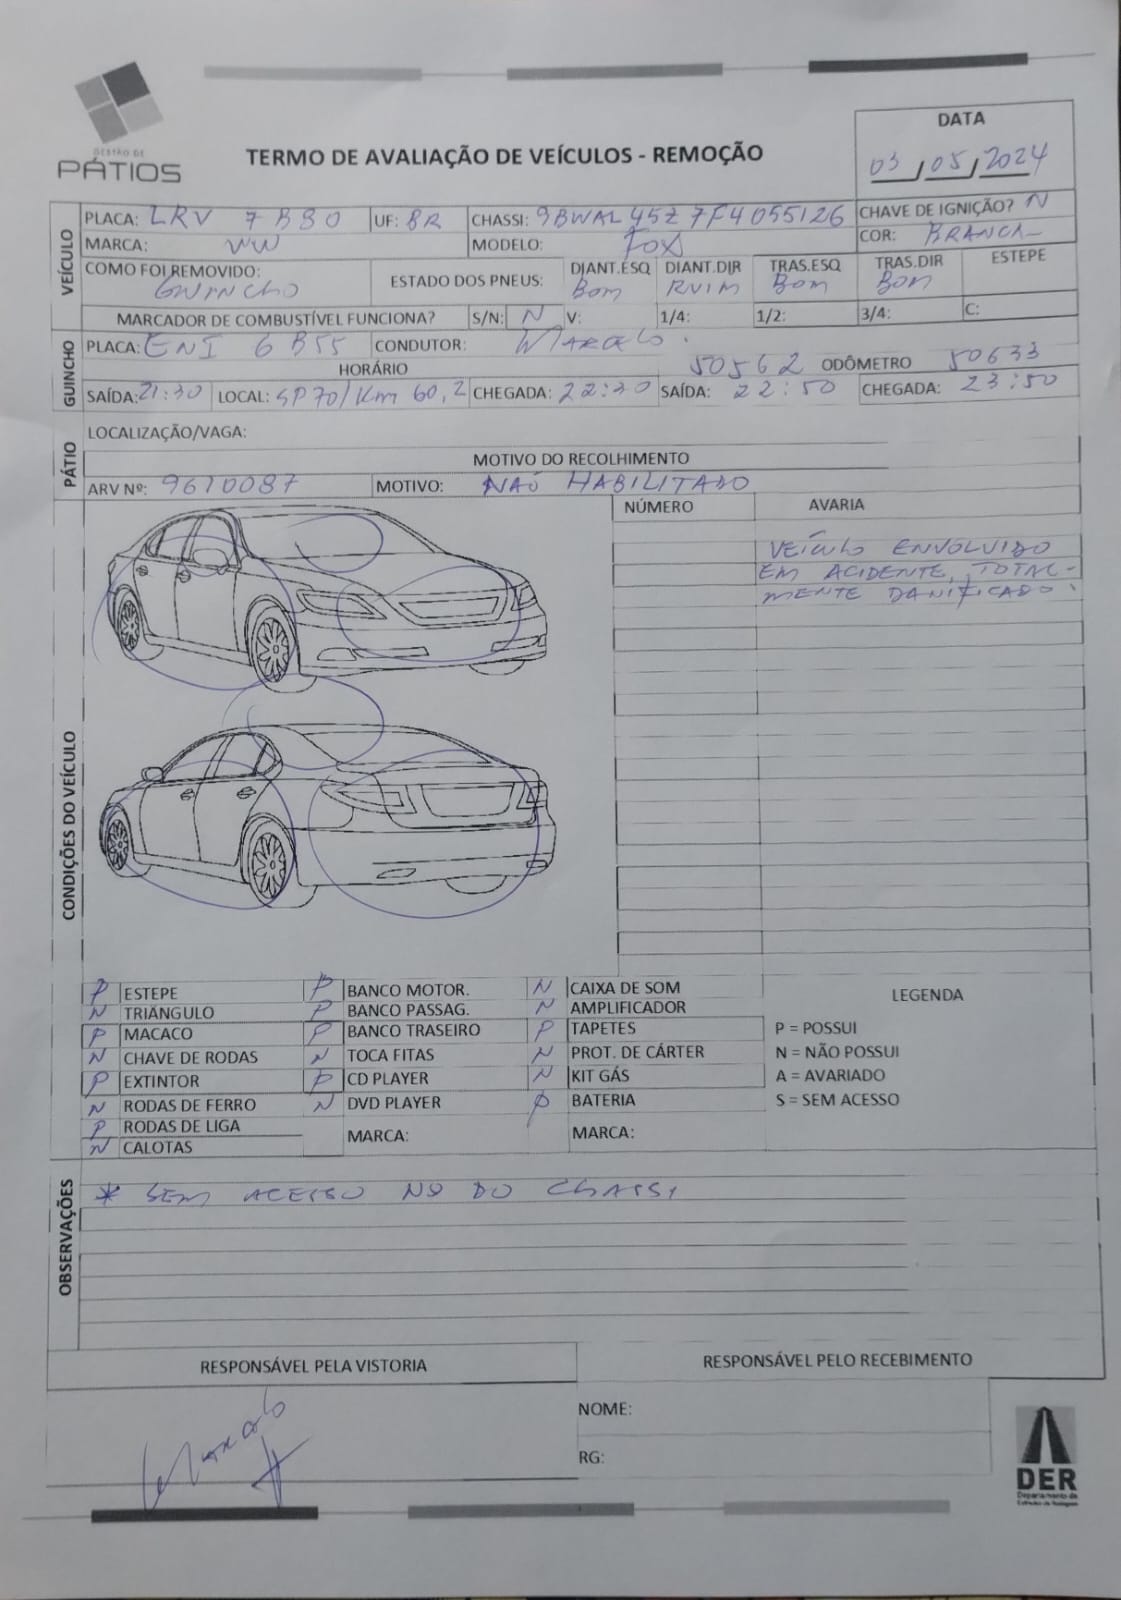 GESTÃO DE
PÁTIOS
TERMO DE AVALIAÇÃO DE VEÍCULOS - REMOÇÃO
DATA
03/05/2024
VEÍCULO
PLACA: LRV 7B80 UF: BR CHASSI: 9BWAL45Z7F4055126 CHAVE DE IGNIÇÃO? N
MARCA: VW MODELO: FOX COR: BRANCA
COMO FOI REMOVIDO: GUINCHO ESTADO DOS PNEUS: DIANT.ESQ Bom DIANT.DIR RUIM TRAS.ESQ Bom TRAS.DIR Bom ESTEPE
MARCADOR DE COMBUSTÍVEL FUNCIONA? S/N: N V: 1/4: 1/2: 3/4: C:
GUINCHO
PLACA: ENI 6B55 CONDUTOR: MARCELO.
HORÁRIO 50562 ODÔMETRO 50633
SAÍDA: 21:30 LOCAL: SP70/Km 60,2 CHEGADA: 22:30 SAÍDA: 22:50 CHEGADA: 23:50
PÁTIO
LOCALIZAÇÃO/VAGA:
MOTIVO DO RECOLHIMENTO
ARV Nº: 9610087 MOTIVO: NAÕ HABILITADO
CONDIÇÕES DO VEÍCULO
NÚMERO AVARIA
VEÍCULO ENVOLVIDO
EM ACIDENTE, TOTAL-
MENTE DANIFICADO.
P ESTEPE P BANCO MOTOR. N CAIXA DE SOM
N TRIÂNGULO P BANCO PASSAG. N AMPLIFICADOR
P MACACO P BANCO TRASEIRO P TAPETES
N CHAVE DE RODAS N TOCA FITAS N PROT. DE CÁRTER
P EXTINTOR P CD PLAYER N KIT GÁS
N RODAS DE FERRO N DVD PLAYER P BATERIA
P RODAS DE LIGA MARCA: MARCA:
N CALOTAS
LEGENDA
P = POSSUI
N = NÃO POSSUI
A = AVARIADO
S = SEM ACESSO
OBSERVAÇÕES
* SEM ACESSO Nº DO CHASSI
RESPONSÁVEL PELA VISTORIA
Marcelo
RESPONSÁVEL PELO RECEBIMENTO
NOME:
RG:
DER
Departamento de
Estradas de Rodagem